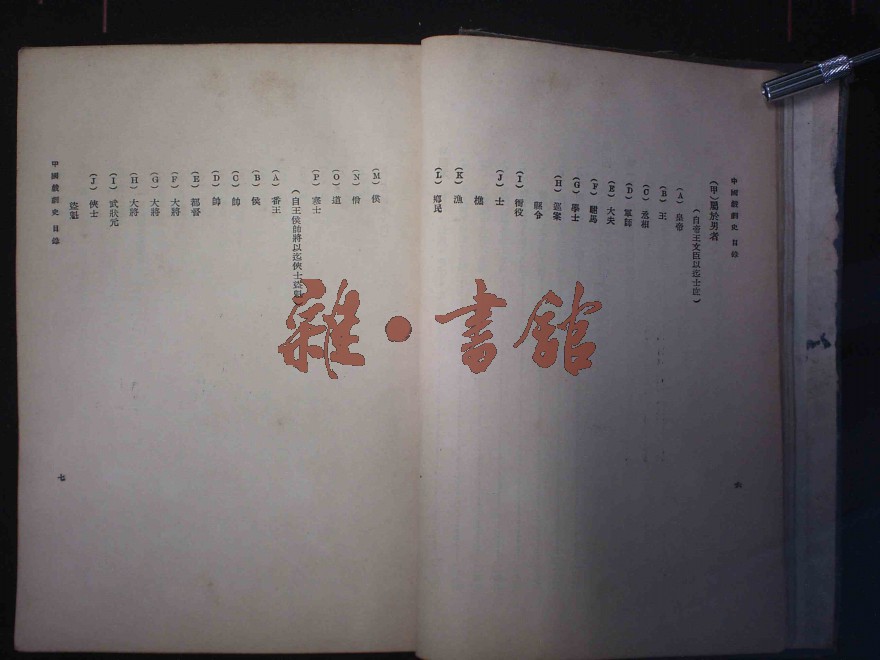 中國戲劇史 目錄
(甲)屬於男者
(自帝王文臣以迄士庶)
(A) 皇帝
(B) 王
(C) 丞相
(D) 軍師
(E) 大夫
(F) 駙馬
(G) 學士
(H)
縣令
(I) 衙役
(J) 士
樵
(K) 漁
(L) 鄉民
六
(M) 侯
(N) 僧
(O) 道
(P) 寒士
(自王侯帥將以迄俠士盜魁)
(A) 番王
(B) 侯
(C) 帥
(D) 帥
(E) 都督
(F) 大將
(G) 大將
(H) 大將
(I) 武狀元
(J) 俠士
盜魁
中國戲劇史 目錄
七
雜·書館